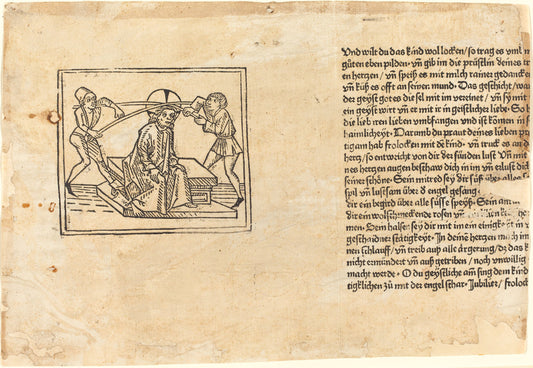 Und wilt du das kind wol locken/ so trag es vmb m
gůten eben pilden· vñ gib im die prüstlin deines tr
en hertzen/ vñ speiß es mit milch rainer gedancke
vñ küß es offt an seinen mund· Das geschicht/ wan
der geyst gotes die sel mit im vereinet/ vñ sy mit
ein geyst wirt vñ er mit ir in geistlicher liebe· So
die lieb iren lieben vmbfangen vnd ist komen in
haimlicheyt· Darumb du praut deines lieben
tigam hab frolocken mit dē kind· vñ truck es an d
hertz/ so entweicht von dir der sünden lust Vñ mit
nes hertzen augen beschaw dich in im vñ erlust did
seiner schöne· Sein mit red sey dir süß
spil vñ lustsam über d engel gesang
dir ein begird über alle süsse speyß· Sein am
dir ein wolschmeckende rosen vñ
men· Dein halsen sey dir mit im ein einigkeyt in
geschaidner stätigkeyt· In deinē hertzen mach im
nen schlauff/ vñ treib auß alle ärgerung/ dz das k
nicht ermündert vñ auß getriben/ noch vnwillig
macht werde· O du geystliche am sing dem kind
tigklichen zů mit der engel schar· Jubilier/ frolock